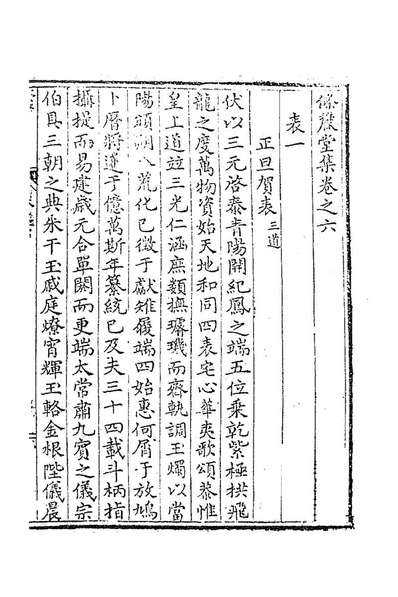 條麓堂集卷之六
表一
正旦賀表三道
伏以三元啓泰青陽開紀鳳之端五位乗乾紫極拱飛
龍之度萬物資始天地和同四表宅心華夷歌頌恭惟
皇上道竝三光仁涵庶類撫璿璣而齊軌調玉燭以當
陽頭朔八荒化已徵于獻雉履端四始惠何屑于放鳩
卜曆將遥于億萬斯年纂統已及夫三十四載斗柄指
攝提而易建歲元合單閼而更端太常肅九賓之儀宗
伯具三朝之典朱干玉戚庭燎宵輝玉輅金根陛儀晨